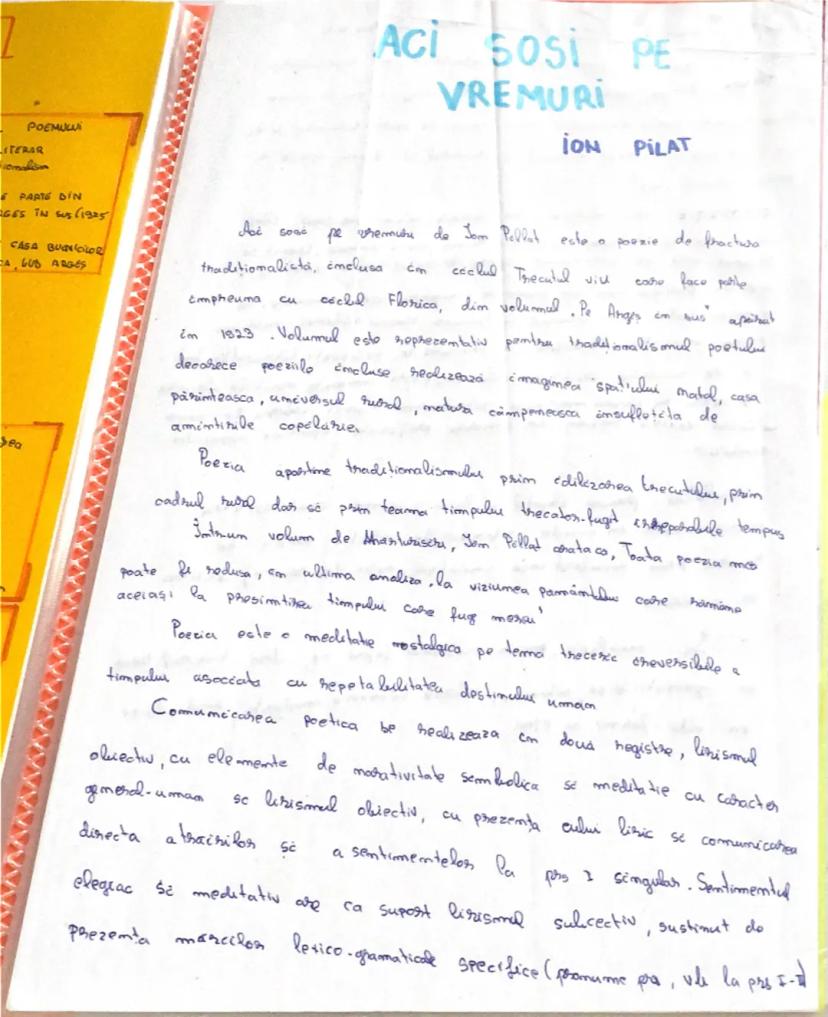 1
POEMULUI
LITERAR
E PARTE DIN
RGEȘ ÎN SUS (1925
CASA BUNICILOR
CA, LUB ARGEȘ
ACI SOSI PE
VREMURI
ION PILAT
Aci sosi pe vremuri de Ion Pillat este o poezie de factura
tradiționalistă, inclusa in ciclul Trecutul viu care face parte
impreuna cu ciclul Florica, din volumul "Pe Argeș in sus" apărut
in 1923. Volumul este reprezentativ pentru tradiționalismul poetului
deoarece poeziile incluse realizează imaginea spatiului natal, casa
părinteasca, universul rural, natura câmpeneasca insuflețita de
amintirile copilariei
Poezia apartine tradiționalismului prin idilizarea trecutului, prin
cadrul rural dar si prin teama timpului trecator-fugit irreparabile tempus
Într-un volum de Marturisiri, Ion Pillat arata ca, Toata poezia mea
poate fi redusa, in ultima analiza, la viziunea pamântului care rămâne
aceiași la presimtirea timpului care fuge mereu"
Poezia este o meditatie nostalgica pe tema trecerii ireversibile a
timpului asociata cu repetabilitatea destinului uman
Comunicarea poetica se realizeaza in două registre, lirismul
obiectiv, cu elemente de narativitate simbolica si meditatie cu caracter
general-uman si lirismul obiectiv, cu prezența eului liric si comunicarea
directa a trairilor și a sentimentelor la prs I singular. Sentimentul
elegiac și meditativ are ca suport lirismul subiectiv, sustinut de
prezența marcilor lexico-gramaticale specifice (pronume prs, vb la prs I-II)